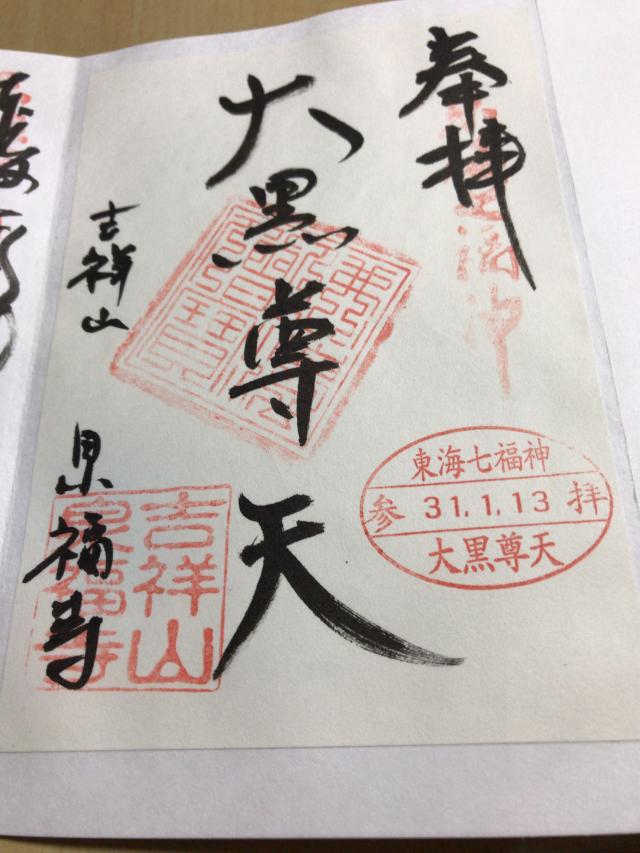 奉拝
大黒尊天
吉祥山
泉福寺
東海七福神
参 31.1.13 拝
大黒尊天
吉祥山
泉福寺